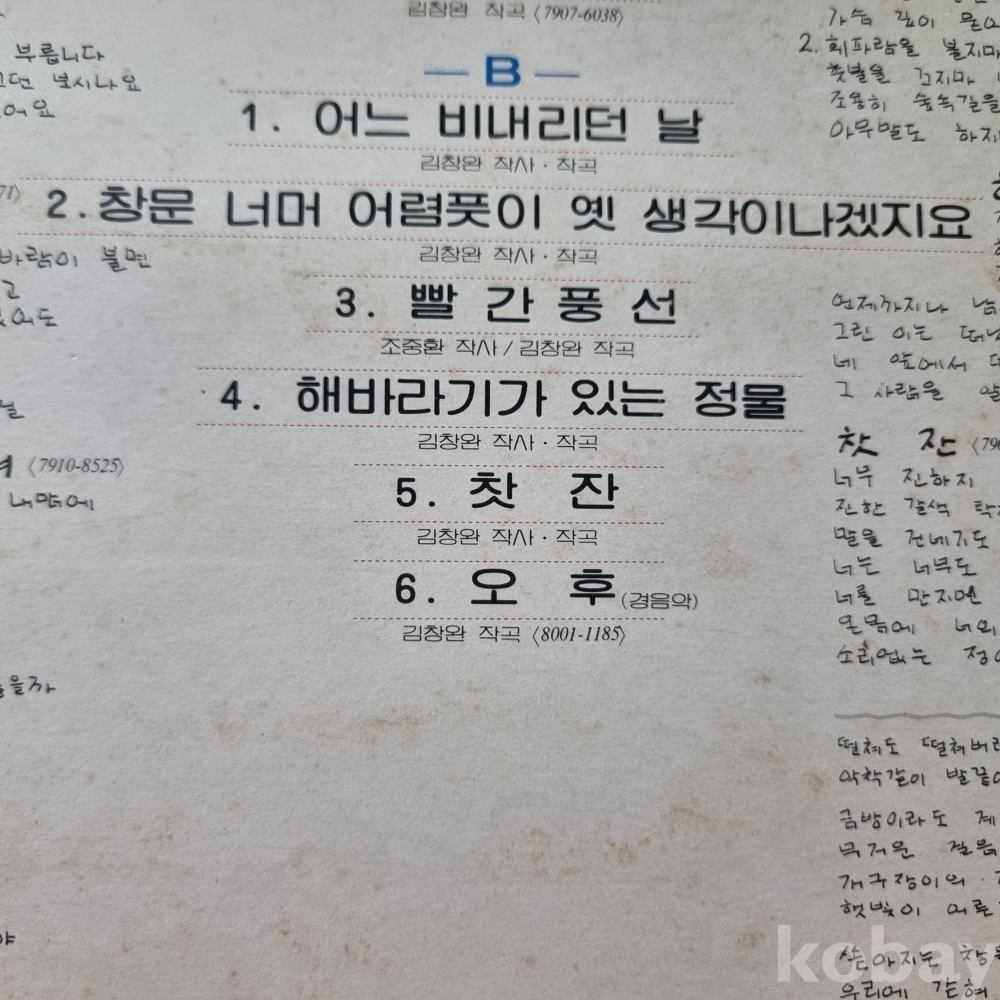 김창완 작곡 〈7907-6038〉
— B —
1. 어느 비내리던 날
김창완 작사 · 작곡
2. 창문 너머 어렴풋이 옛 생각이나겠지요
김창완 작사 · 작곡
3. 빨간풍선
조중환 작사 / 김창완 작곡
4. 해바라기가 있는 정물
김창완 작사 · 작곡
5. 찻잔
김창완 작사 · 작곡
6. 오후 (경음악)
김창완 작곡 〈8001-1185〉
부릅니다
보시나요
바람이 불면
〈7910-8525〉
내맘에
가슴 깊이
2. 휘파람을 불지마
촛불을 끄지마
조용히 숲속길을
아무말도 하지
언제까지나
그린 이는 떠난
네 앞에서
그 사람을 알
찻 잔
너무 진하지
진한 갈색 탁
말을 건네기도
너는 너무도
너를 만지면
온몸에 너의
소리없는 정
떨쳐도 떨쳐버리
악착같이 발끝
금방이라도
무거운 걸음
개구장이의
햇빛이 어른
쏟아지는 창
우리에 갇혀
kobay